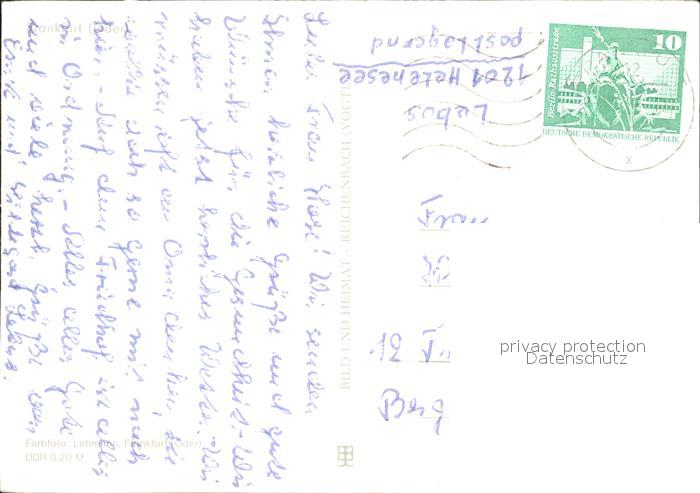 Frankfurt (Oder)
Liebe Frau Glose! Wir senden
Ihnen herzliche Grüße und gute
Wünsche für die Gesundheit. - Wir
haben jetzt herrliches Wetter. Wir
müssen oft an Omi denken, die
wollte doch so gerne mit nach
hier. - Auf dem Friedhof ist alles
in Ordnung. - Alles alles Gute
und viele herzl. Grüße von
Ernst und Hildegard Lebus.
Farbfoto: Lehmann, Frankfurt (Oder)
DDR 0,20 M
BILD UND HEIMAT · REICHENBACH (VOGTL
Lebus
1201 Helenesee
postlagernd
Berlin-Rathausstraße
10
DEUTSCHE DEMOKRATISCHE REPUBLIK
Frau
12 F
Berg
privacy protection
Datenschutz